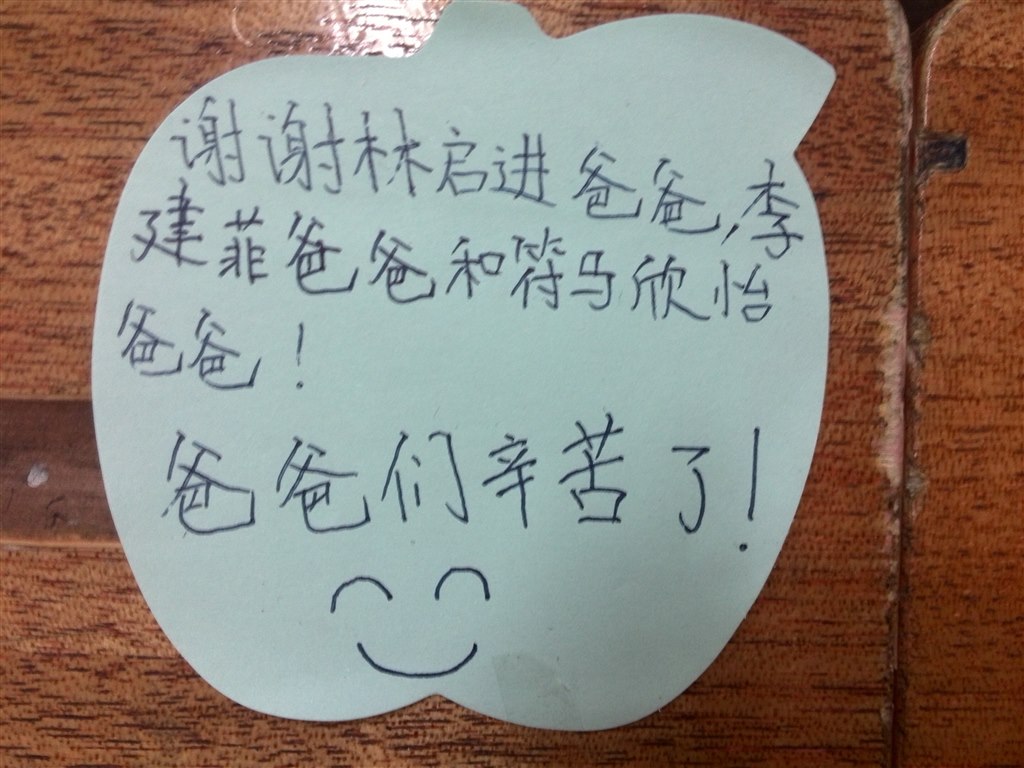 谢谢林启进爸爸,李
建菲爸爸和符马欣怡
爸爸!
爸爸们辛苦了!